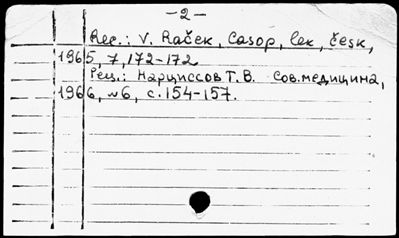 -2-
Rec.: V. Raček, Casop, lek, česk,
1965, 7, 172-172
Рец.: Нарциссов Т.В. Сов.медицина,
1966, №6, с.154-157.